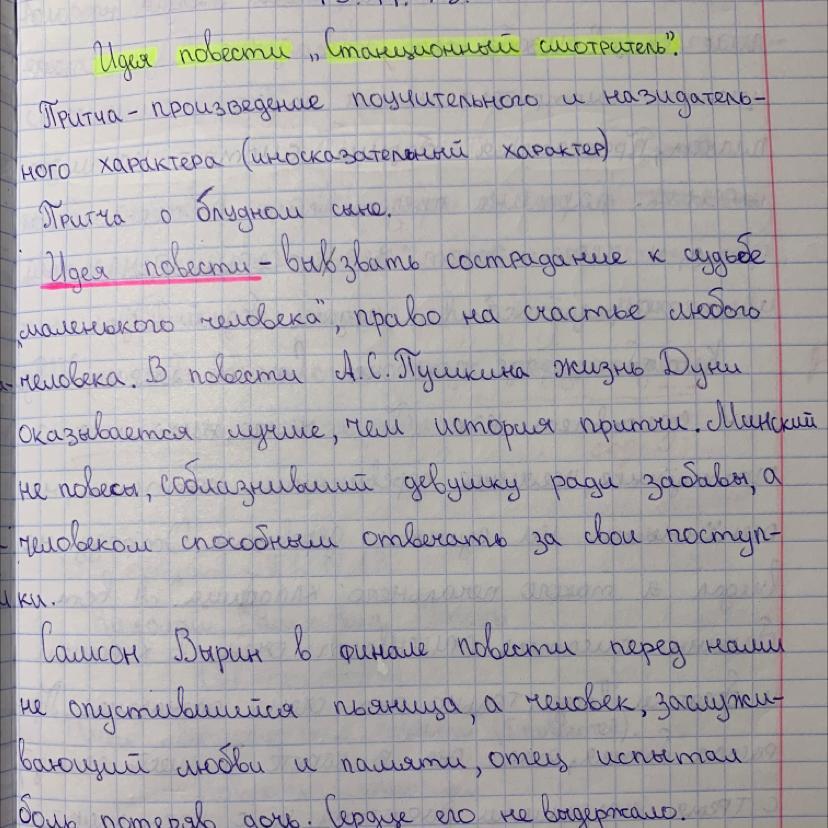 Идея повести „Станционный смотритель".
Притча – произведение поучительного и назидатель-
ного характера (иносказательный характер)
Притча о блудном сыне.
Идея повести – вызвать сострадание к судьбе
„маленького человека", право на счастье любого
человека. В повести А.С. Пушкина жизнь Дуни
оказывается лучше, чем история притчи. Минский
не повесы, соблазнивший девушку ради забавы, а
человеком способным отвечать за свои поступ-
ки.
Самсон Вырин в финале повести перед нами
не опустившийся пьяница, а человек, заслужи-
вающий любви и памяти, отец испытал
боль потеряв дочь. Сердце его не выдержало.